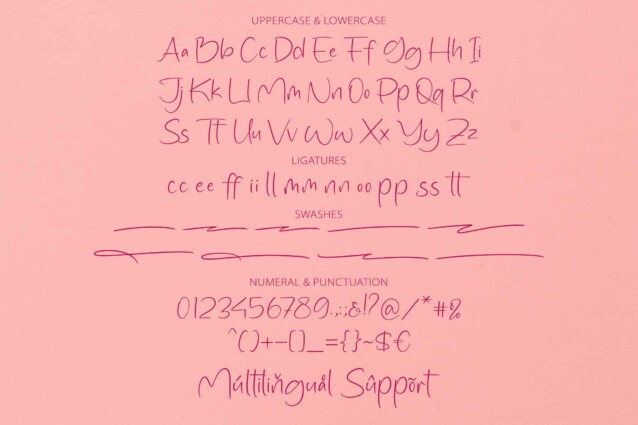 UPPERCASE & LOWERCASE
Aa Bb Cc Dd Ee Ff Gg Hh Ii
Jj Kk Ll Mm Nn Oo Pp Qq Rr
Ss Tt Uu Vv Ww Xx Yy Zz
LIGATURES
cc ee ff ii ll mm nn oo pp ss tt
SWASHES
NUMERAL & PUNCTUATION
0123456789.,:;&!?@/*#%
^()+-[]_={}~$€
Múltilìņğuål Sûppõrt